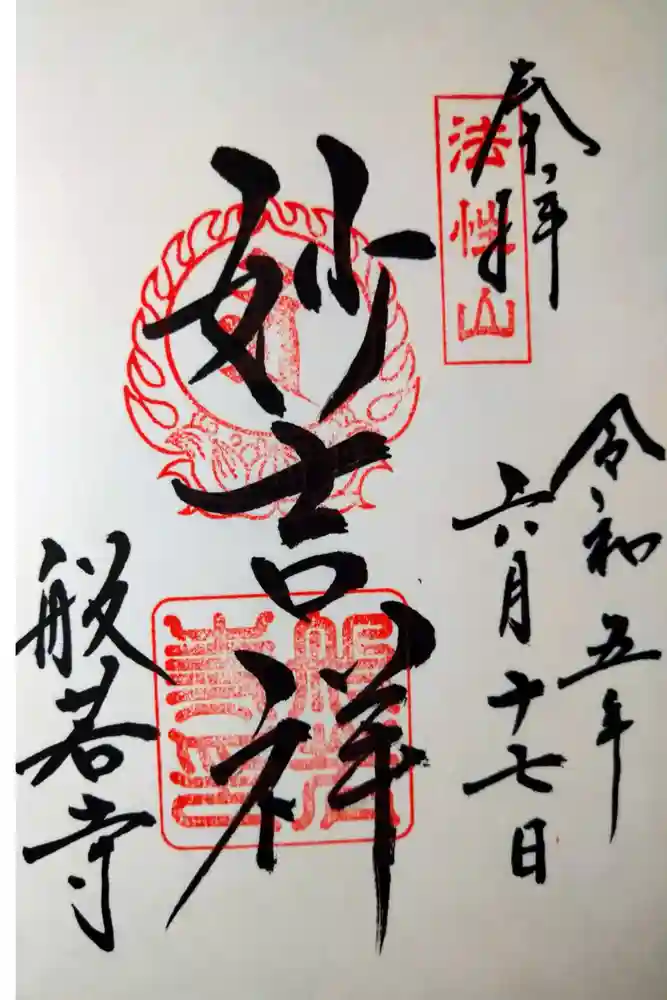 奉拝
法性山
令和五年
六月十七日
妙吉祥
般若寺